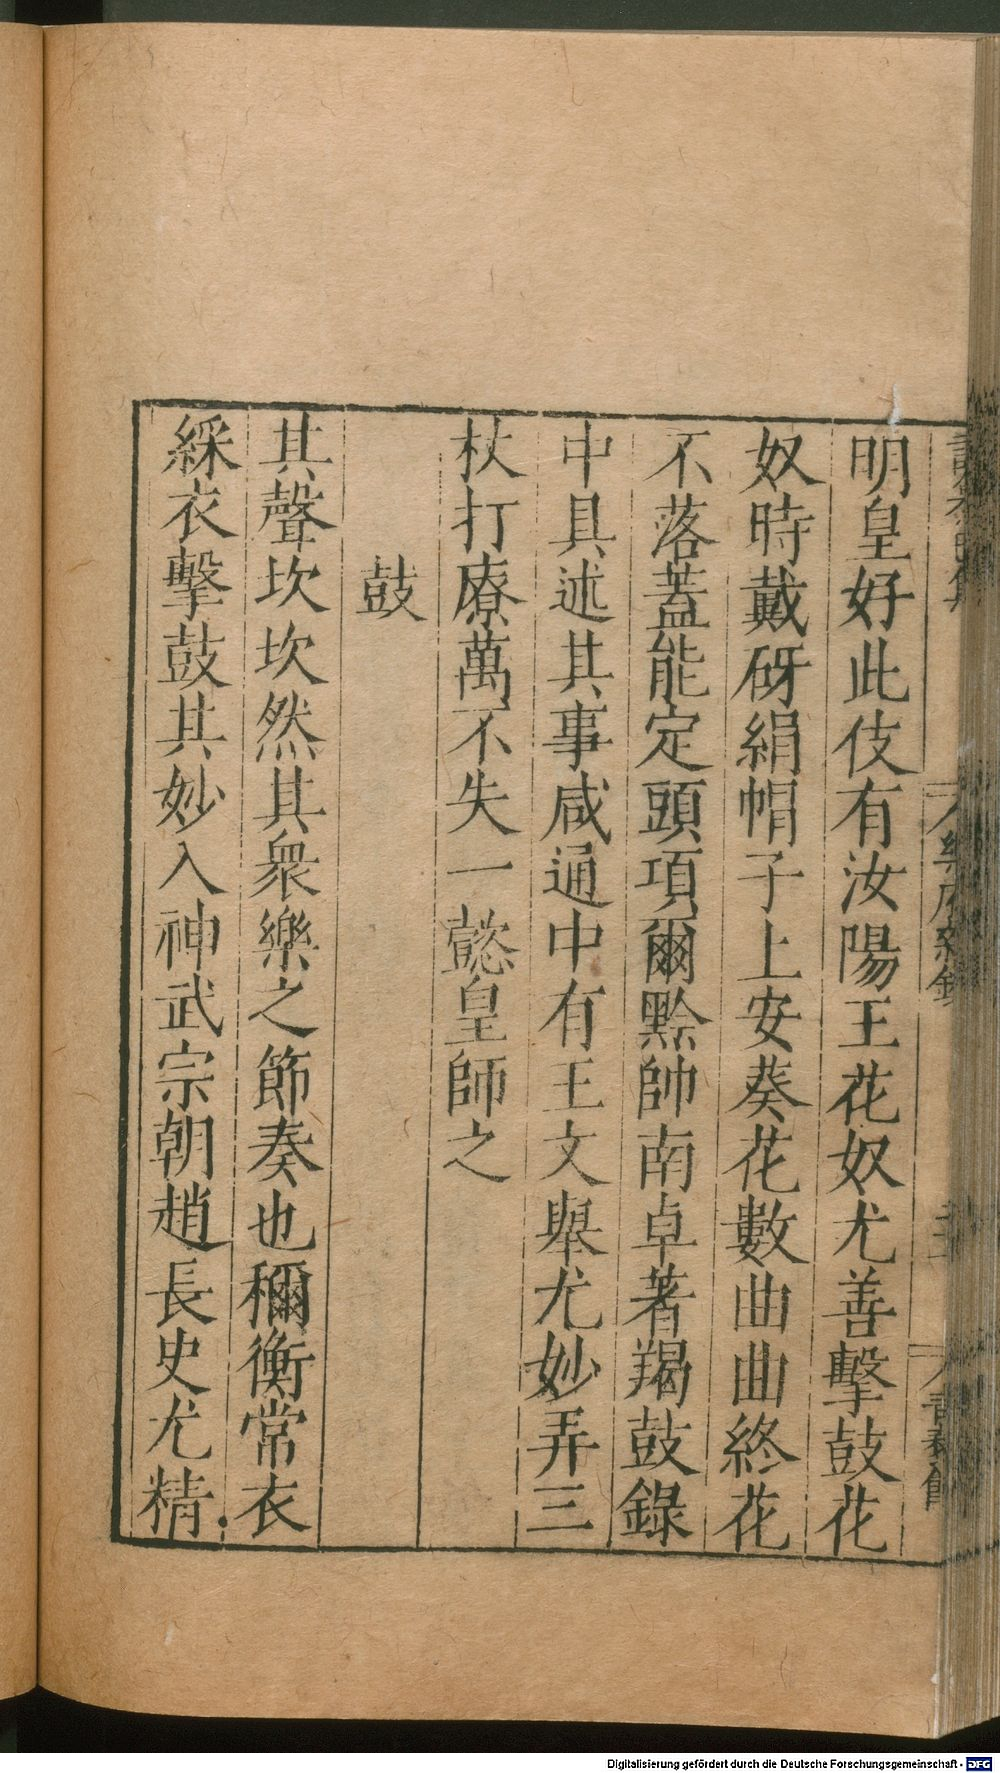 明皇好此伎有汝陽王花奴尤善擊鼓花
奴時戴砑絹帽子上安葵花數曲曲終花
不落蓋能定頭項爾黔帥南卓著羯鼓錄
中具述其事咸通中有王文舉尤妙弄三
杖打撩萬不失一懿皇師之
鼓
其聲坎坎然其衆樂之節奏也禰衡常衣
綵衣擊鼓其妙入神武宗朝趙長史尤精
樂府雜錄
Digitalisierung gefördert durch die Deutsche Forschungsgemeinschaft - DFG